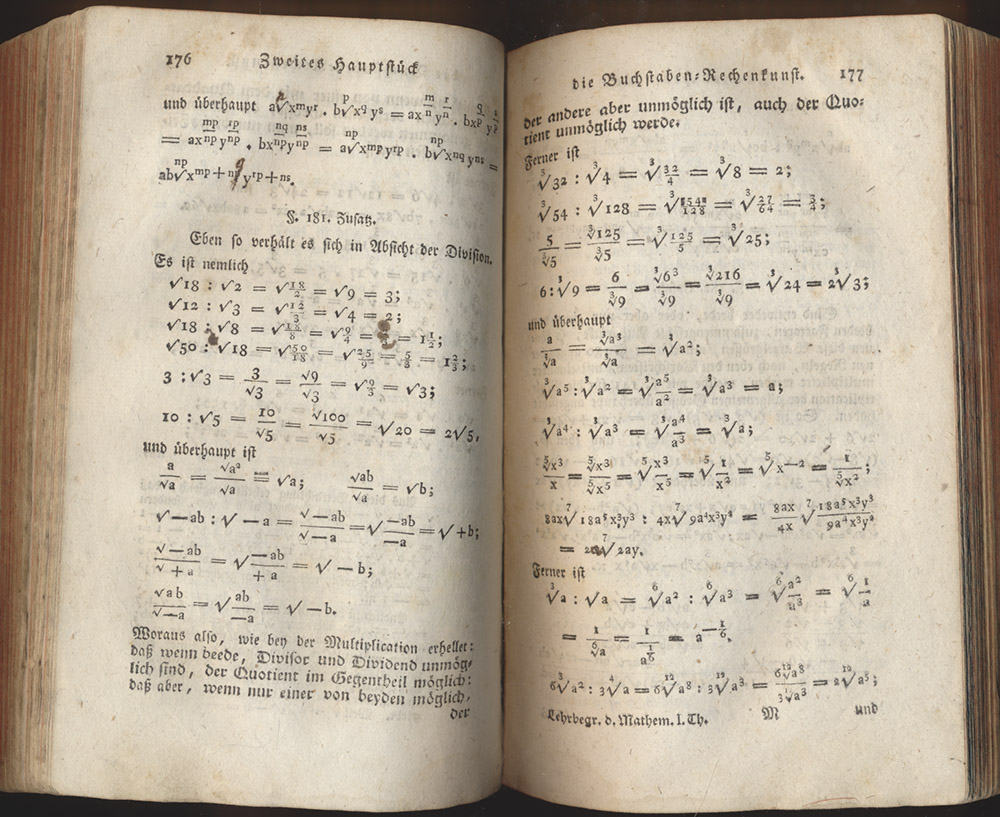 176 Zweites Hauptstück
und überhaupt a√xᵐyʳ . b ᵖ√x^q y^s = ax^(m/n) y^(r/n) . bx^(q/p) y^(s/p)
= ax^(mp/np) y^(rp/np) . bx^(nq/np) y^(ns/np) = a ⁿᵖ√x^mp y^rp . b ⁿᵖ√x^nq y^ns =
ab ⁿᵖ√x^(mp+nq) y^(rp+ns).
§. 181. Zusatz.
Eben so verhält es sich in Absicht der Division.
Es ist nemlich
√18 : √2 = √18/2 = √9 = 3;
√12 : √3 = √12/3 = √4 = 2;
√18 : √8 = √18/8 = √9/4 = = 1½;
√50 : √18 = √50/18 = √25/9 = 5/3 = 1⅔;
3 : √3 = 3/√3 = √9/√3 = √9/3 = √3;
10 : √5 = 10/√5 = √100/√5 = √20 = 2√5.
und überhaupt ist
a/√a = √a²/√a = √a; √ab/√a = √b;
√—ab : √—a = √—ab/√—a = √(—ab/—a) = √+b;
√—ab/√+a = √(—ab/+a) = √—b;
√ab/√—a = √(ab/—a) = √—b.
Woraus also, wie bey der Multiplication erhellet:
daß wenn beede, Divisor und Dividend unmög-
lich sind, der Quotient im Gegentheil möglich:
daß aber, wenn nur einer von beyden möglich,
der
die Buchstaben-Rechenkunst. 177
der andere aber unmöglich ist, auch der Quo-
tient unmöglich werde.
Ferner ist
³√32 : ³√4 = ³√32/4 = ³√8 = 2;
³√54 : ³√128 = ³√54/128 = ³√27/64 = ¾;
5/³√5 = ³√125/³√5 = ³√125/5 = ³√25;
6 : ³√9 = 6/³√9 = ³√6³/³√9 = ³√216/³√9 = ³√24 = 2³√3;
und überhaupt
a/³√a = ³√a³/³√a = ³√a²;
³√a⁵ : ³√a² = ³√a⁵/a² = ³√a³ = a;
³√a⁴ : ³√a³ = ³√a⁴/a³ = ³√a;
⁵√x³/x = ⁵√x³/⁵√x⁵ = ⁵√x³/x⁵ = ⁵√1/x² = ⁵√x—² = 1/⁵√x²;
8ax ⁷√18a⁵x³y³ : 4x ⁷√9a⁴x³y² = 8ax/4x ⁷√18a⁵x³y³/9a⁴x³y²
= 2a ⁷√2ay.
Ferner ist
³√a : √a = ⁶√a² : ⁶√a³ = ⁶√a²/a³ = ⁶√1/a
= 1/⁶√a = 1/a^(1/6) = a^(—1/6).
6³√a² : 3⁴√a = 6¹²√a⁸ : 3¹²√a³ = 6¹²√a⁸/3¹²√a³ = 2¹²√a⁵;
Lehrbegr. d. Mathem. I. Th. M und